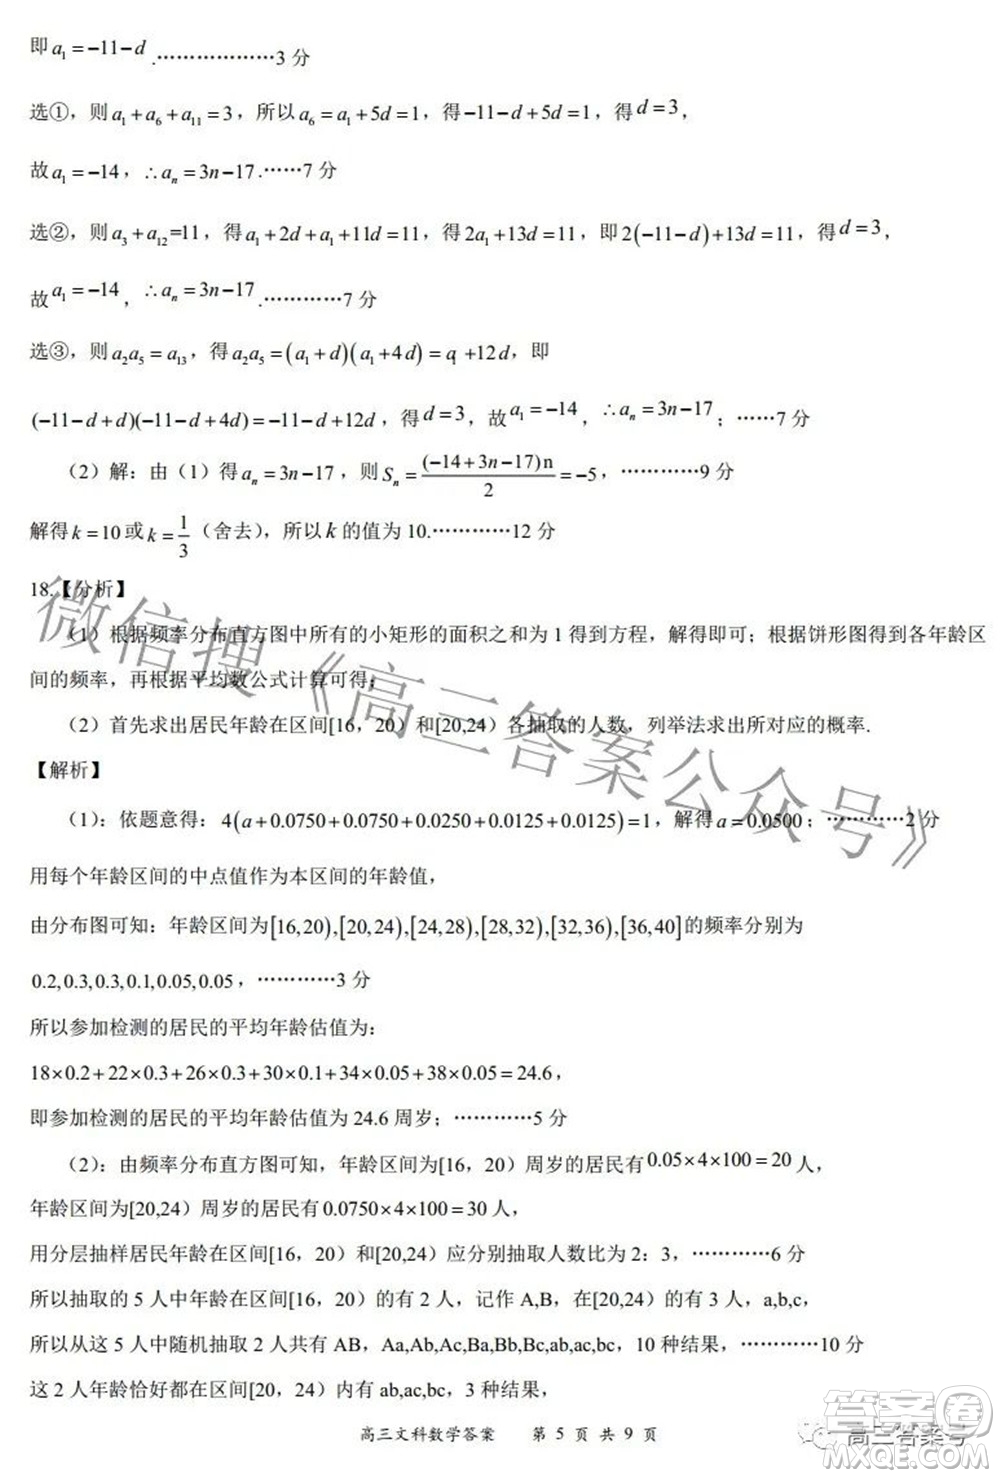 即 a₁ = −11 − d .………………3 分
选①，则 a₁ + a₆ + a₁₁ = 3，所以 a₆ = a₁ + 5d = 1，得 −11 − d + 5d = 1，得 d = 3，
故 a₁ = −14，∴ aₙ = 3n − 17 .……7 分
选②，则 a₃ + a₁₂ = 11，得 a₁ + 2d + a₁ + 11d = 11，得 2a₁ + 13d = 11，即 2(−11 − d) + 13d = 11，得 d = 3，
故 a₁ = −14，∴ aₙ = 3n − 17 .…………7 分
选③，则 a₂a₅ = a₁₃，得 a₂a₅ = (a₁ + d)(a₁ + 4d) = q + 12d，即
(−11 − d + d)(−11 − d + 4d) = −11 − d + 12d，得 d = 3，故 a₁ = −14，∴ aₙ = 3n − 17；……7 分
（2）解：由（1）得 aₙ = 3n − 17，则 Sₙ = (−14 + 3n − 17)n / 2 = −5，…………9 分
解得 k = 10 或 k = 1/3（舍去），所以 k 的值为 10.…………12 分
18.【分析】
（1）根据频率分布直方图中所有的小矩形的面积之和为 1 得到方程，解得即可；根据饼形图得到各年龄区
间的频率，再根据平均数公式计算可得；
（2）首先求出居民年龄在区间[16，20）和[20,24）各抽取的人数，列举法求出所对应的概率.
【解析】
（1）：依题意得：4(a + 0.0750 + 0.0750 + 0.0250 + 0.0125 + 0.0125) = 1，解得 a = 0.0500；…………2 分
用每个年龄区间的中点值作为本区间的年龄值，
由分布图可知：年龄区间为[16,20),[20,24),[24,28),[28,32),[32,36),[36,40]的频率分别为
0.2,0.3,0.3,0.1,0.05,0.05，…………3 分
所以参加检测的居民的平均年龄估值为：
18×0.2+22×0.3+26×0.3+30×0.1+34×0.05+38×0.05=24.6，
即参加检测的居民的平均年龄估值为 24.6 周岁；…………5 分
（2）：由频率分布直方图可知，年龄区间为[16，20）周岁的居民有 0.05×4×100=20 人，
年龄区间为[20,24）周岁的居民有 0.0750×4×100=30 人，
用分层抽样居民年龄在区间[16，20）和[20,24）应分别抽取人数比为 2：3，…………6 分
所以抽取的 5 人中年龄在区间[16，20）的有 2 人，记作 A,B，在[20,24）的有 3 人，a,b,c，
所以从这 5 人中随机抽取 2 人共有 AB，Aa,Ab,Ac,Ba,Bb,Bc,ab,ac,bc，10 种结果，…………10 分
这 2 人年龄恰好都在区间[20，24）内有 ab,ac,bc，3 种结果，
高三文科数学答案 第 5 页 共 9 页
微信搜《高三答案公众号》
高三答案号
答案圈
MXQE.COM